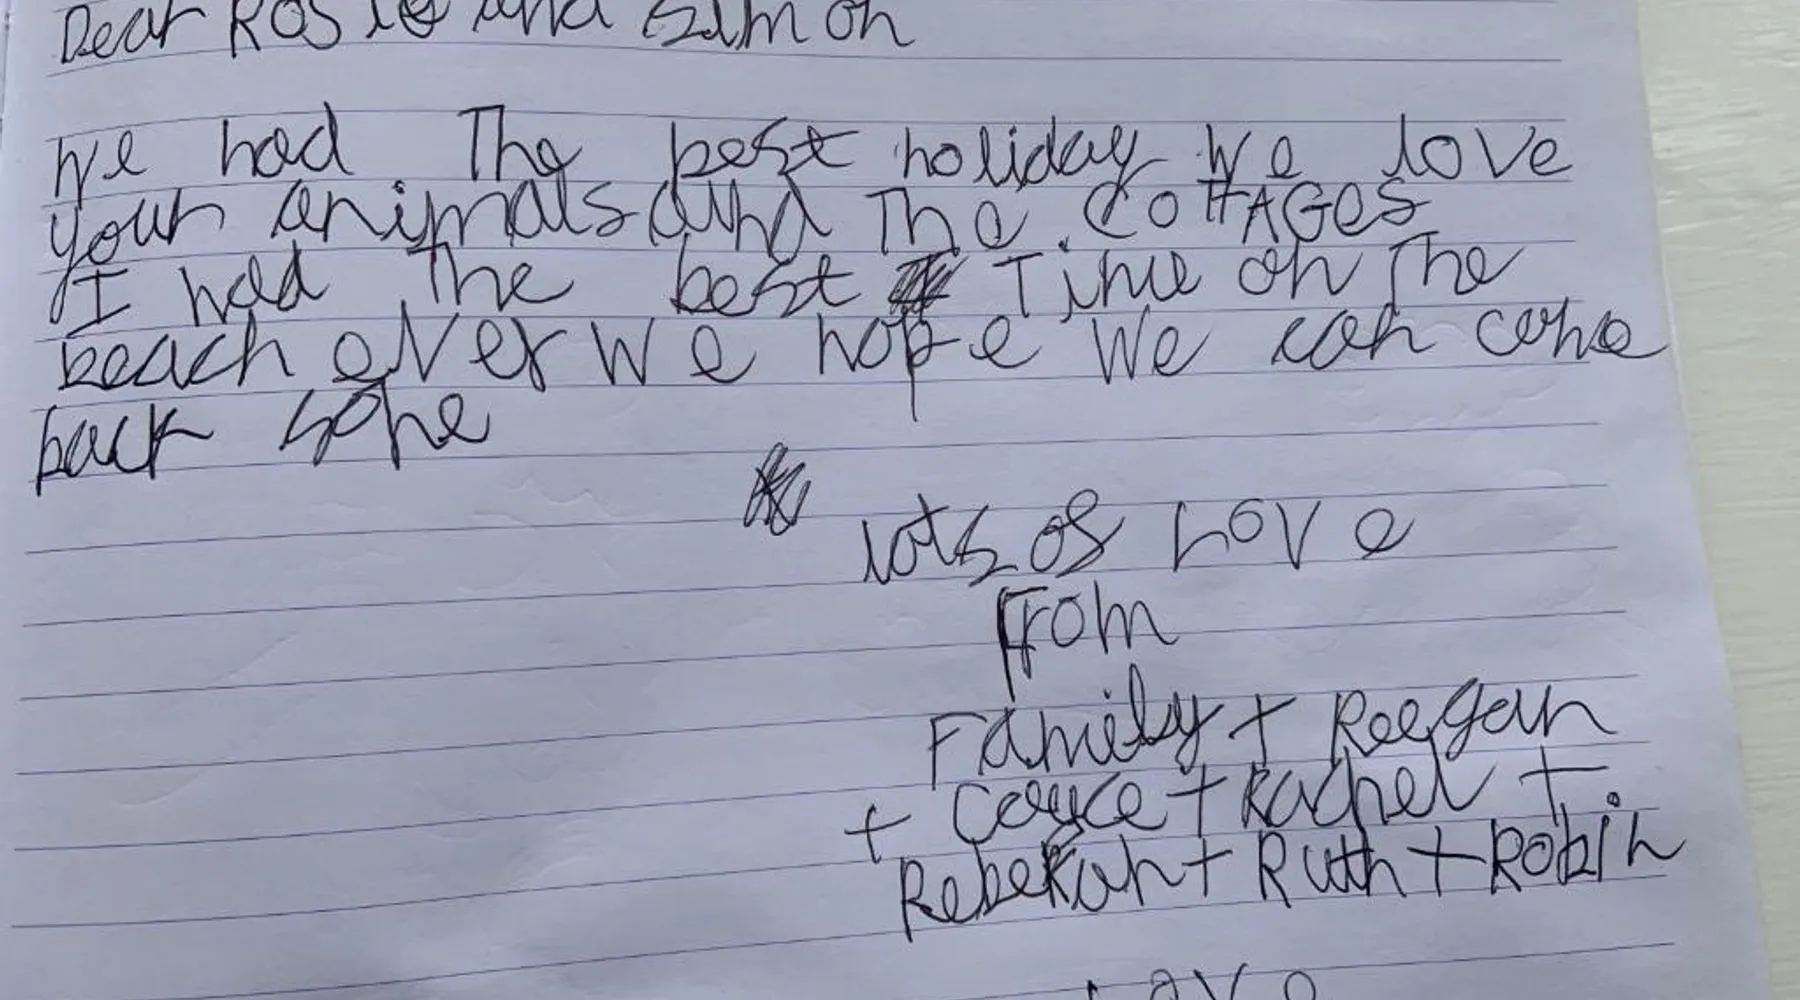 Dear Rosie and Simon
We had The best holiday We love
your animals and The COttAGes
I had The best Time on The
beach ever We hope We can come
back sone
lots of Love
From
Family + Reegan
+ Cayce + Rachel +
Rebekah + Ruth + Robin
Love